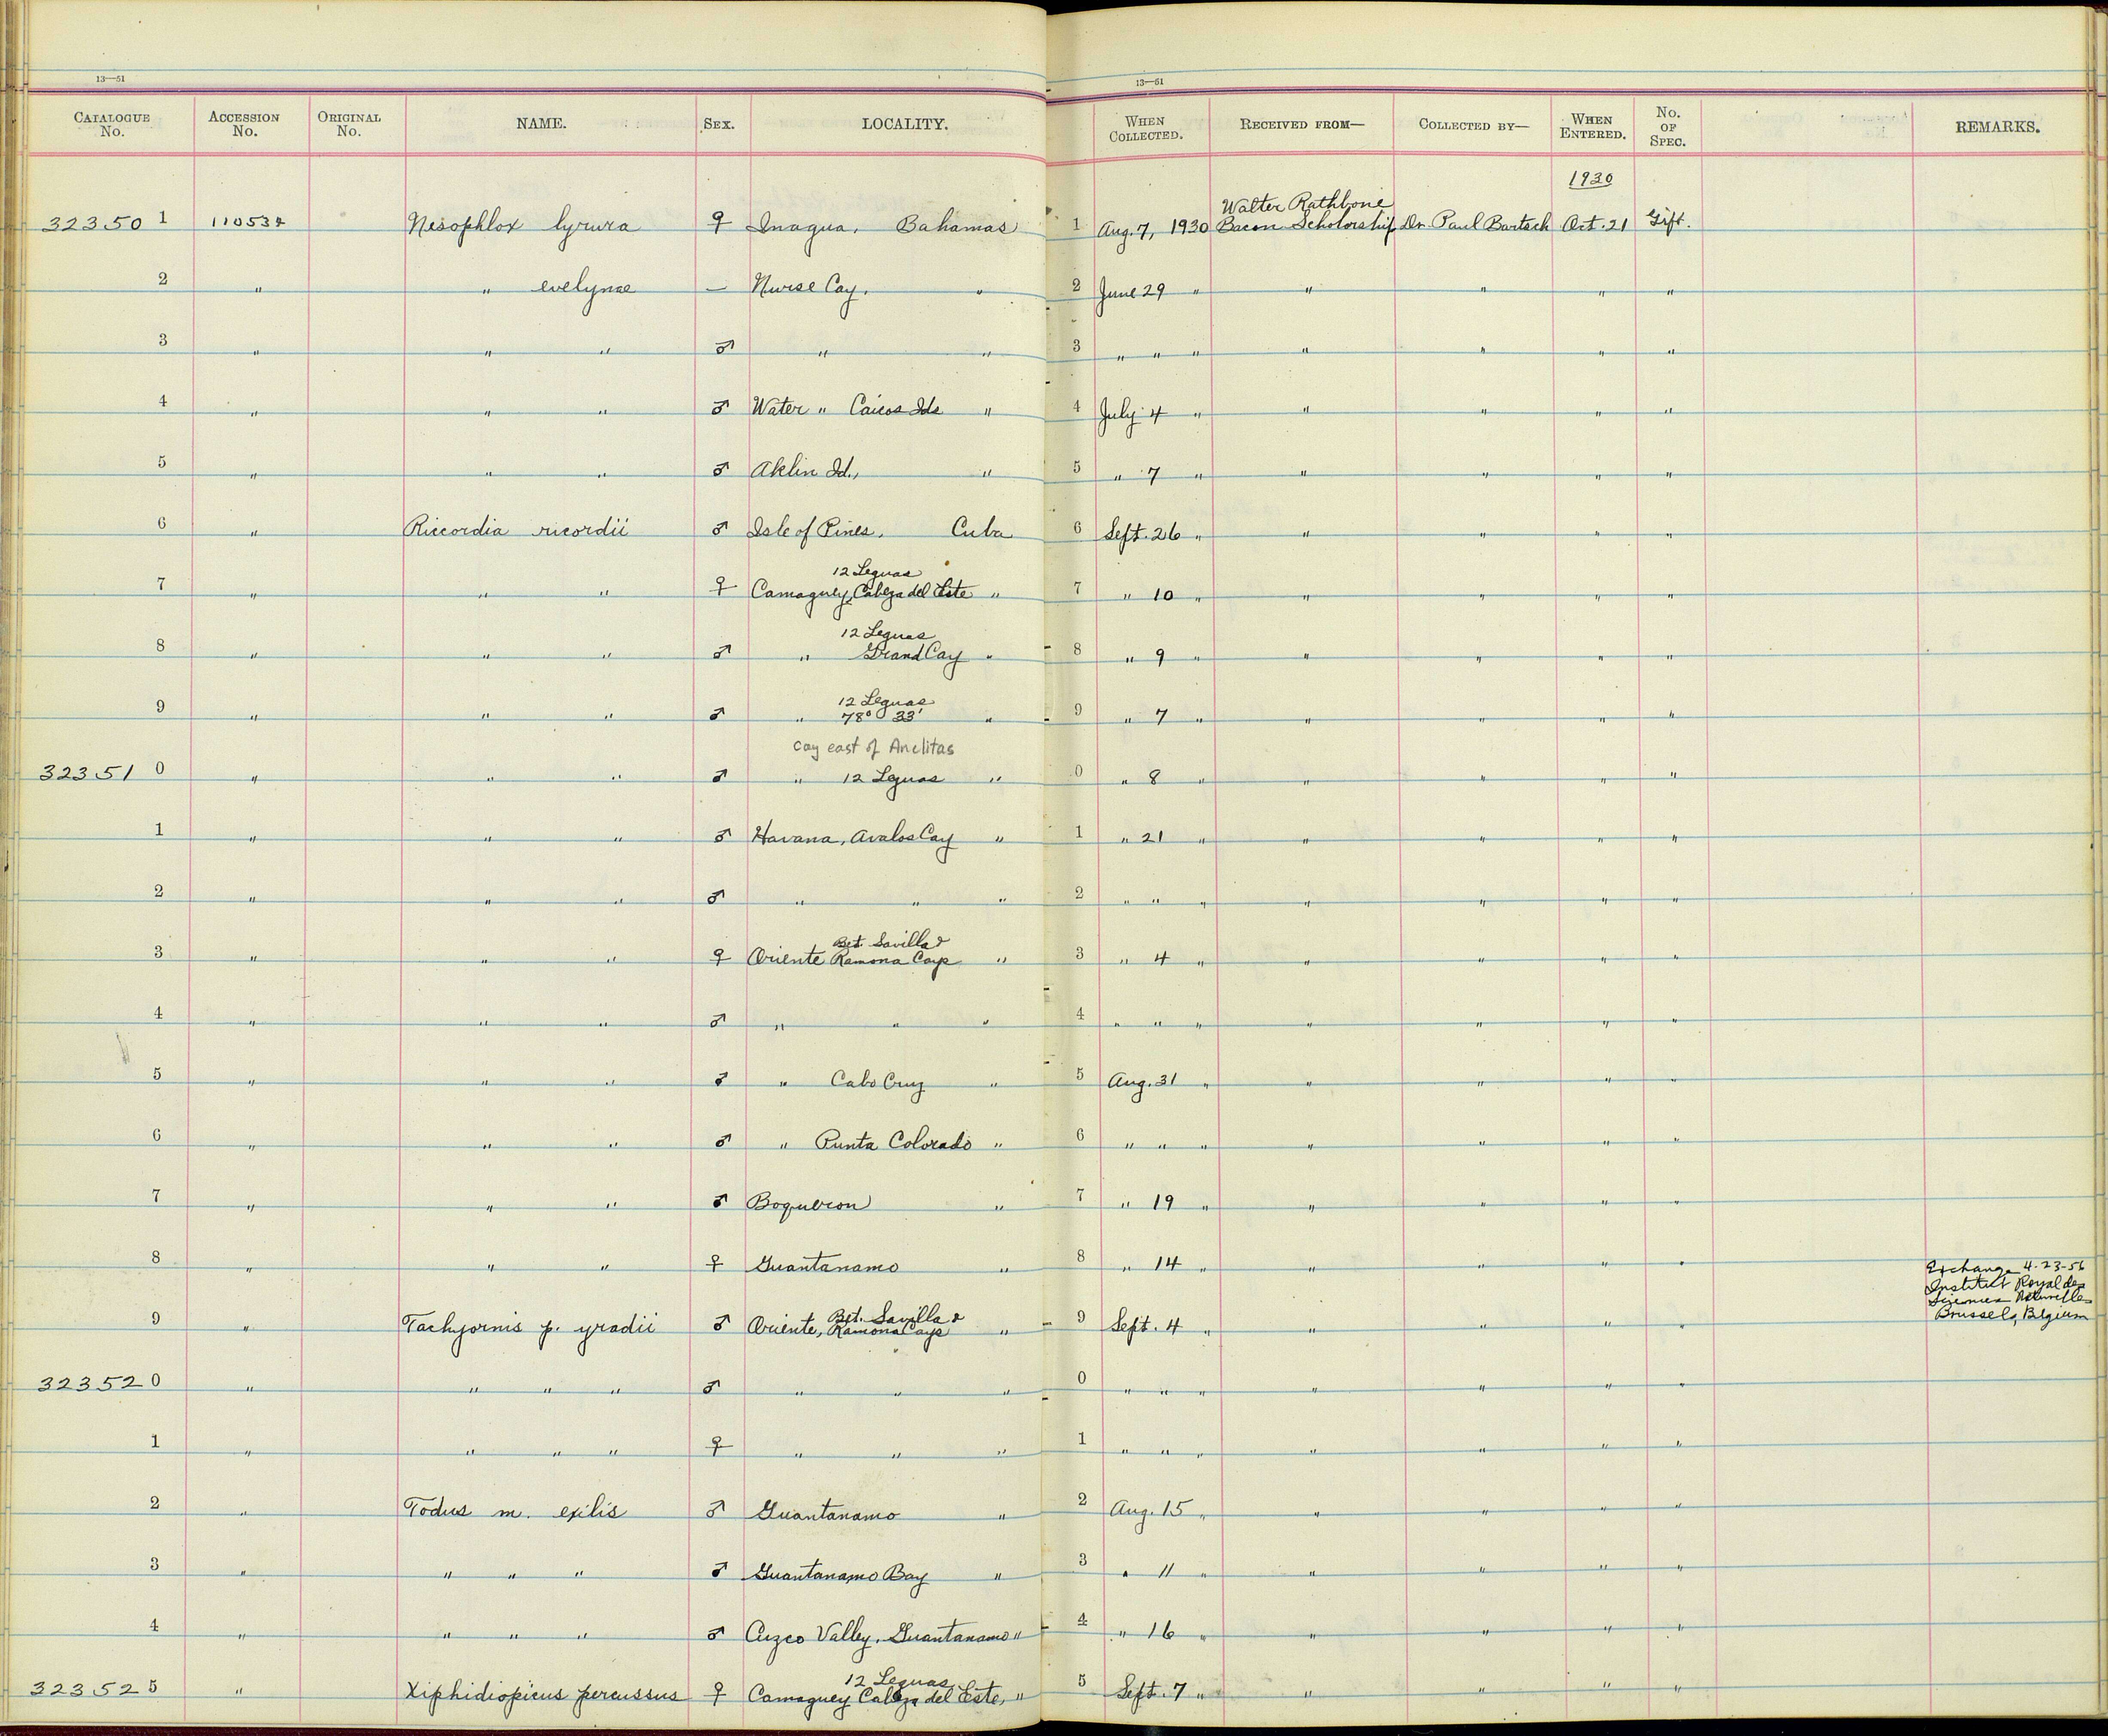 13—51
13—51
CATALOGUE No. ACCESSION No. ORIGINAL No. NAME. SEX. LOCALITY. WHEN COLLECTED. RECEIVED FROM— COLLECTED BY— WHEN ENTERED. No. OF SPEC. REMARKS.
1930
Walter Rathbone
32350 1 Nesophlox lyrura ♀ Inagua, Bahamas 1 Aug. 7, 1930 Bacon Scholarship Dr. Paul Bartsch Oct. 21 Gift.
2 " " evelynae — Nurse Cay, " 2 June 29 " " " " "
3 " " " ♂ " " 3 " " " " " " "
4 " " " ♂ Water " Caicos Ids " 4 July 4 " " " " "
5 " " " ♂ Aklin Id., " 5 " 7 " " " " "
6 " Riccordia ricordii ♂ Isle of Pines, Cuba 6 Sept. 26 " " " " "
12 Leguas
7 " " " ♀ Camaguey, Cabeza del Este " 7 " 10 " " " " "
12 Leguas
8 " " " ♂ " Grand Cay " 8 " 9 " " " " "
12 Leguas
9 " " " ♂ " 78° 33' " 9 " 7 " " " " "
Cay east of Anclitas
32351 0 " " " ♂ " 12 Leguas " 0 " 8 " " " " "
1 " " " ♂ Havana, Avalos Cay " 1 " 21 " " " " "
2 " " " ♂ " " " 2 " " " " " " "
Bet. Savilla &
3 " " " ♀ Oriente Ramona Cays " 3 " 4 " " " " "
4 " " " ♂ " " " 4 " " " " " " "
5 " " " ♂ " Cabo Cruz " 5 Aug. 31 " " " " "
6 " " " ♂ " Punta Colorado " 6 " " " " " " "
7 " " " ♂ Boqueron " 7 " 19 " " " " "
8 " " " ♀ Guantanamo " 8 " 14 " " " " "
Exchange 4-23-56
Institut Royal des
Sciences Naturelles
Brussels, Belgium
Bet. Savilla &
9 " Tachornis p. yradii ♂ Oriente, Ramona Cays " 9 Sept. 4 " " " " "
32352 0 " " " " ♂ " " " 0 " " " " " " "
1 " " " " ♀ " " " 1 " " " " " " "
2 " Todus m. exilis ♂ Guantanamo " 2 Aug. 15 " " " " "
3 " " " " ♂ Guantanamo Bay " 3 " 11 " " " " "
4 " " " " ♂ Cuzco Valley, Guantanamo " 4 " 16 " " " " "
12 Leguas
32352 5 " Xiphidiopicus percussus ♀ Camaguey Cabeza del Este, " 5 Sept. 7 " " " " "